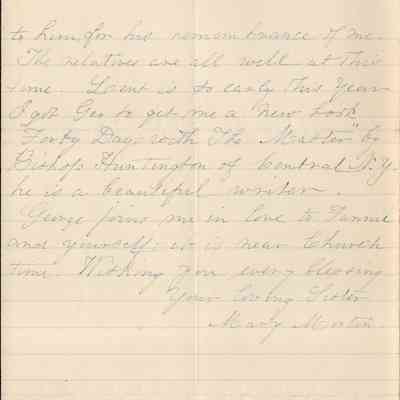 to him for his remembrance of me.
The relatives are all well at this
time. Lent is so early this Year
I got Geo to get me a new book
"Forty Days with The Master" by
Bishop Huntington of Central N.Y.
he is a beautiful writer.
George joins me in love to Fannie
and yourself; it is near Church
time. Wishing you every blessing
Your loving Sister
Mary Morton.